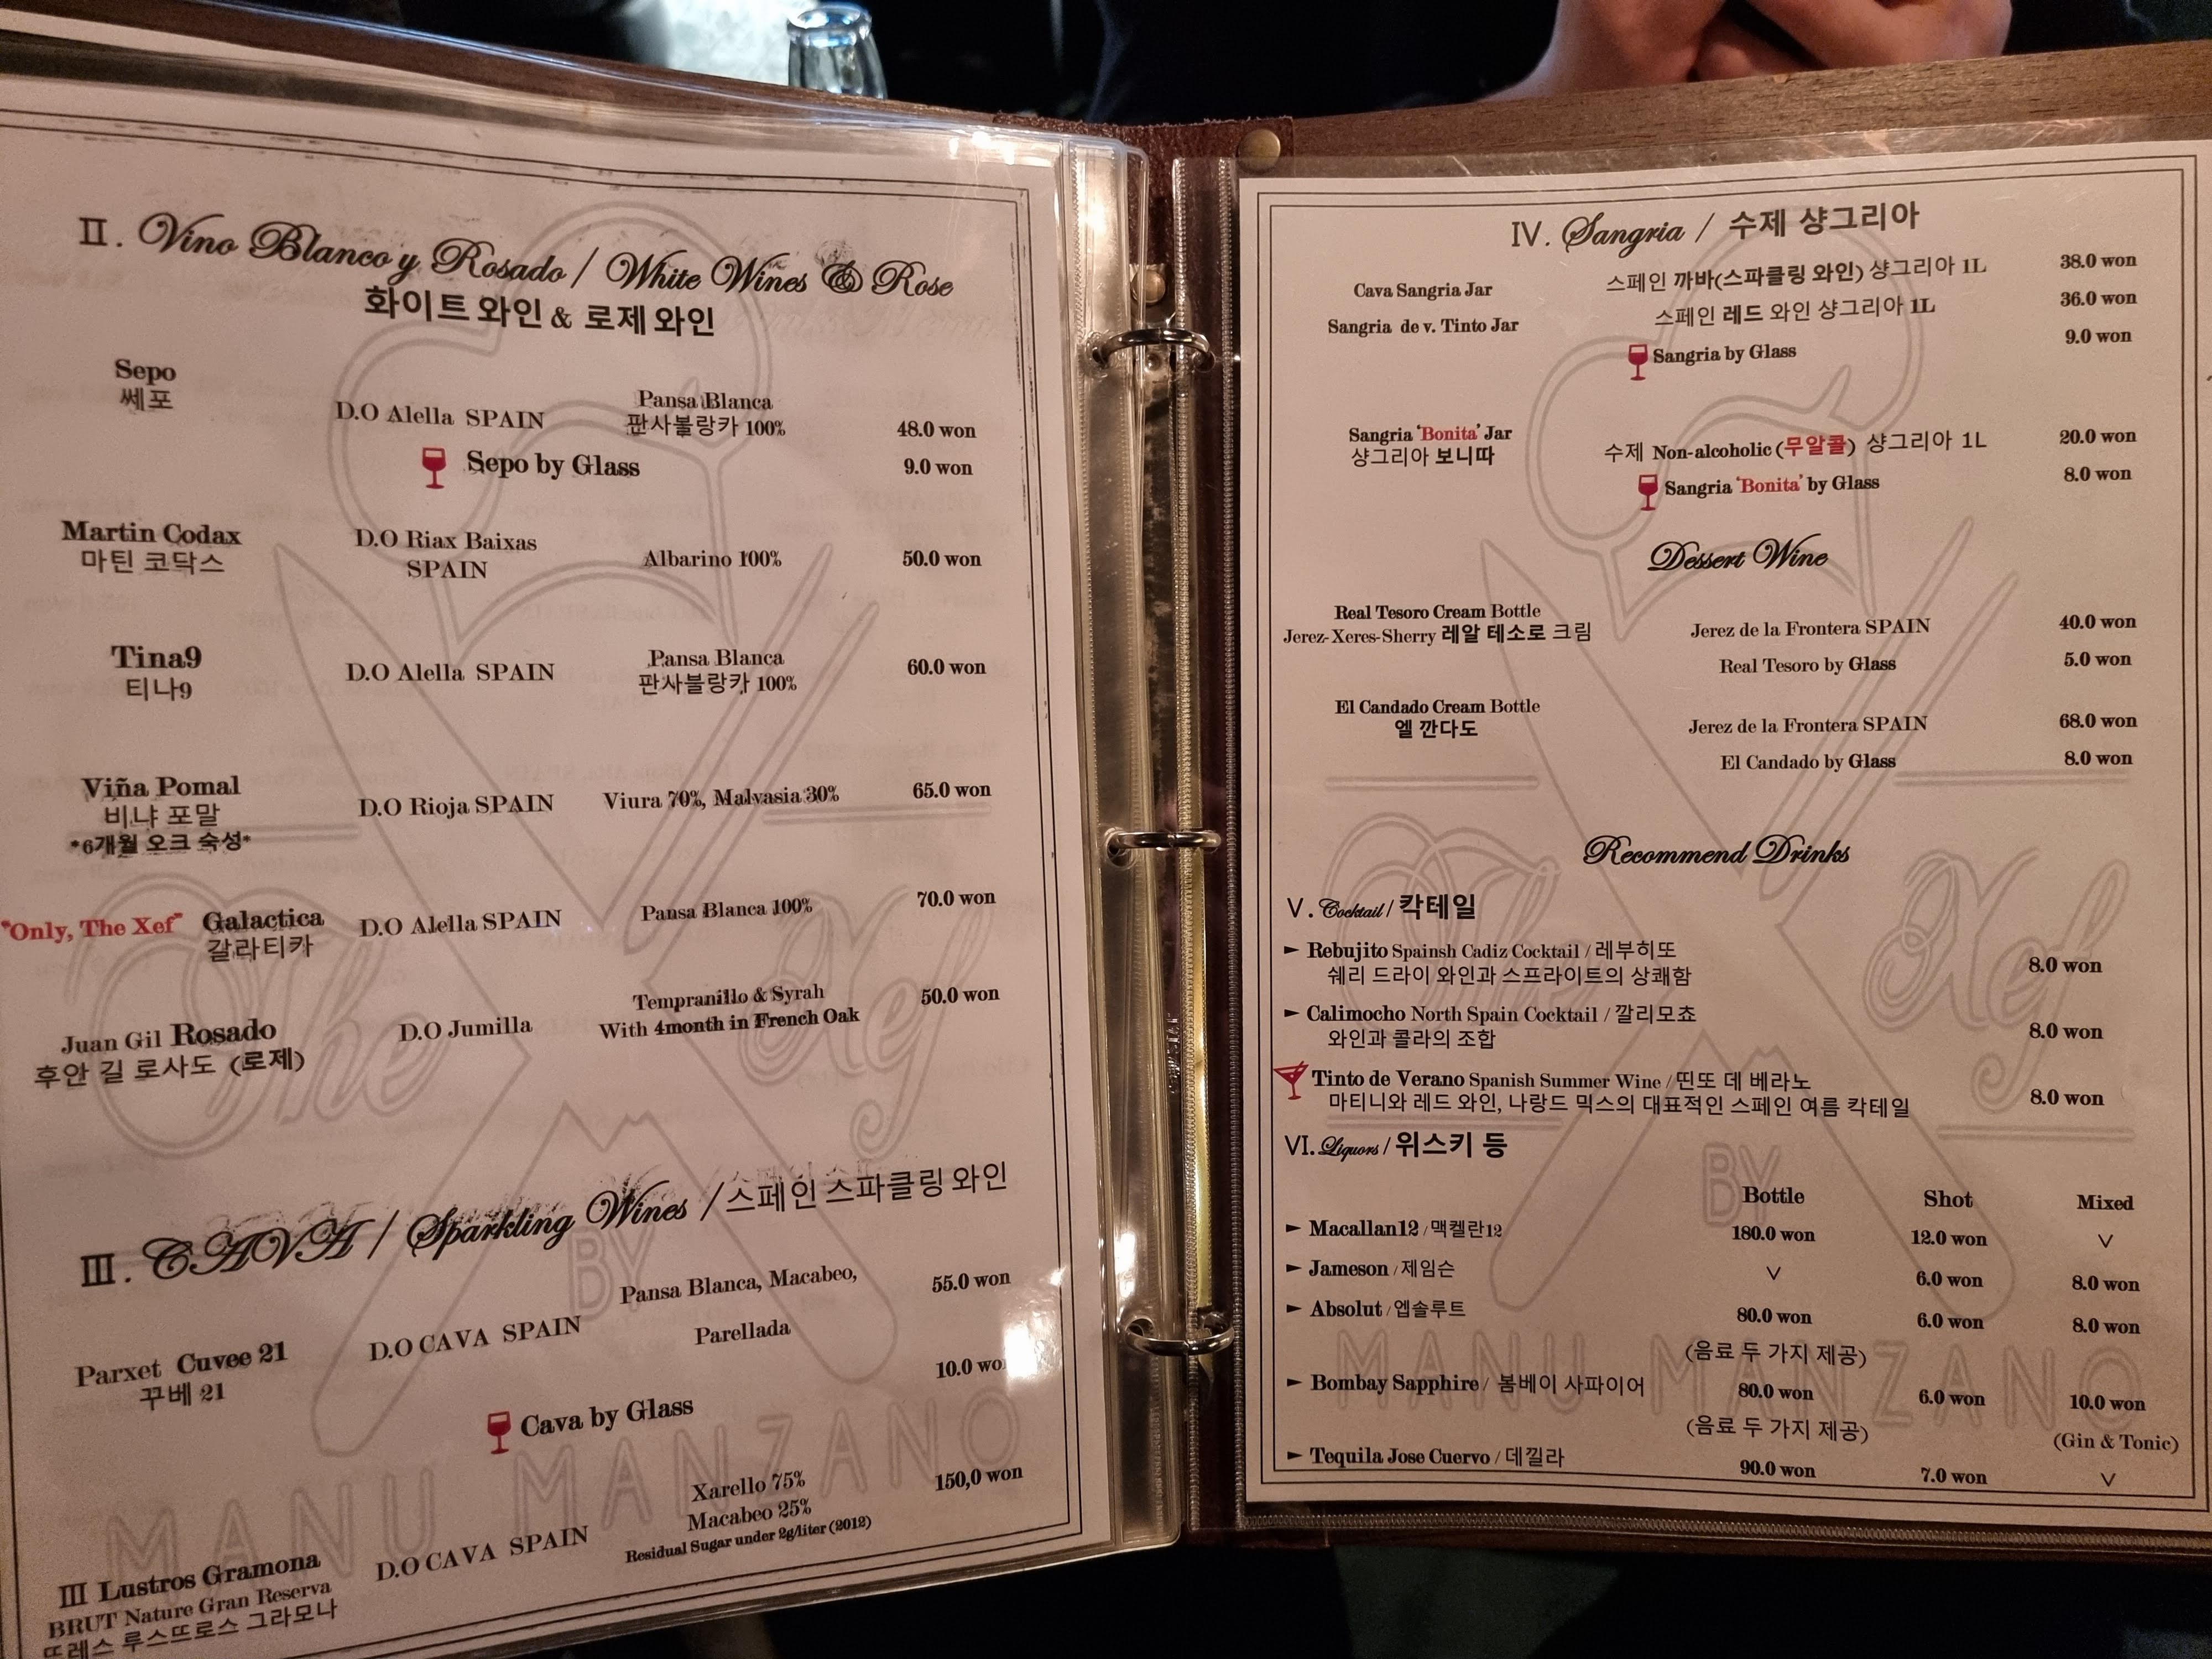 II. Vino Blanco y Rosado / White Wines & Rose
화이트 와인 & 로제 와인
Sepo
쎄포
D.O Alella SPAIN
Pansa Blanca
판사블랑카 100%
48.0 won
Sepo by Glass
9.0 won
Martin Codax
마틴 코닥스
D.O Riax Baixas
SPAIN
Albarino 100%
50.0 won
Tina9
티나9
D.O Alella SPAIN
Pansa Blanca
판사블랑카 100%
60.0 won
Viña Pomal
비냐 포말
*6개월 오크 숙성*
D.O Rioja SPAIN
Viura 70%, Malvasia 30%
65.0 won
"Only, The Xef" Galactica
갈라티카
D.O Alella SPAIN
Pansa Blanca 100%
70.0 won
Juan Gil Rosado
후안 길 로사도 (로제)
D.O Jumilla
Tempranillo & Syrah
With 4month in French Oak
50.0 won
III. CAVA / Sparkling Wines / 스페인 스파클링 와인
Parxet Cuvee 21
꾸베 21
D.O CAVA SPAIN
Pansa Blanca, Macabeo,
Parellada
55.0 won
Cava by Glass
10.0 wo
III Lustros Gramona
BRUT Nature Gran Reserva
뜨레스 루스뜨로스 그라모나
D.O CAVA SPAIN
Xarello 75%
Macabeo 25%
Residual Sugar under 2g/liter (2012)
150,0 won
The Xef
BY
MANU MANZANO
IV. Sangria / 수제 샹그리아
Cava Sangria Jar
스페인 까바(스파클링 와인) 샹그리아 1L
38.0 won
Sangria de v. Tinto Jar
스페인 레드 와인 샹그리아 1L
36.0 won
Sangria by Glass
9.0 won
Sangria 'Bonita' Jar
샹그리아 보니따
수제 Non-alcoholic (무알콜) 샹그리아 1L
20.0 won
Sangria 'Bonita' by Glass
8.0 won
Dessert Wine
Real Tesoro Cream Bottle
Jerez-Xeres-Sherry 레알 테소로 크림
Jerez de la Frontera SPAIN
40.0 won
Real Tesoro by Glass
5.0 won
El Candado Cream Bottle
엘 깐다도
Jerez de la Frontera SPAIN
68.0 won
El Candado by Glass
8.0 won
Recommend Drinks
V. Cocktail / 칵테일
► Rebujito Spainsh Cadiz Cocktail / 레부히또
쉐리 드라이 와인과 스프라이트의 상쾌함
8.0 won
► Calimocho North Spain Cocktail / 깔리모쵸
와인과 콜라의 조합
8.0 won
Tinto de Verano Spanish Summer Wine / 띤또 데 베라노
마티니와 레드 와인, 나랑드 믹스의 대표적인 스페인 여름 칵테일
8.0 won
VI. Liquors / 위스키 등
Bottle Shot Mixed
► Macallan12 / 맥켈란12 180.0 won 12.0 won ∨
► Jameson / 제임슨 ∨ 6.0 won 8.0 won
► Absolut / 앱솔루트 80.0 won 6.0 won 8.0 won
(음료 두 가지 제공)
► Bombay Sapphire / 봄베이 사파이어 80.0 won 6.0 won 10.0 won
(음료 두 가지 제공) (Gin & Tonic)
► Tequila Jose Cuervo / 데낄라 90.0 won 7.0 won ∨
The Xef
BY
MANU MANZANO